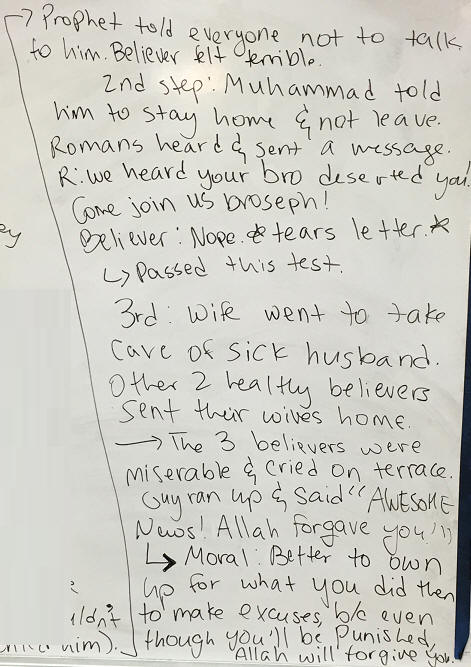 → Prophet told everyone not to talk
to him. Believer felt terrible.
2nd step: Muhammad told
him to stay home & not leave.
Romans heard & sent a message.
R: we heard your bro deserted you!
Come join us broseph!
Believer: Nope. *tears letter.*
↳ Passed this test.
3rd: Wife went to take
care of sick husband.
Other 2 healthy believers
sent their wives home.
→ The 3 believers were
miserable & cried on terrace.
Guy ran up & said "AWESOME
News! Allah forgave you!"
↳ Moral: Better to own
up for what you did then
to make excuses, b/c even
though you'll be Punished,
Allah will forgive you
him).